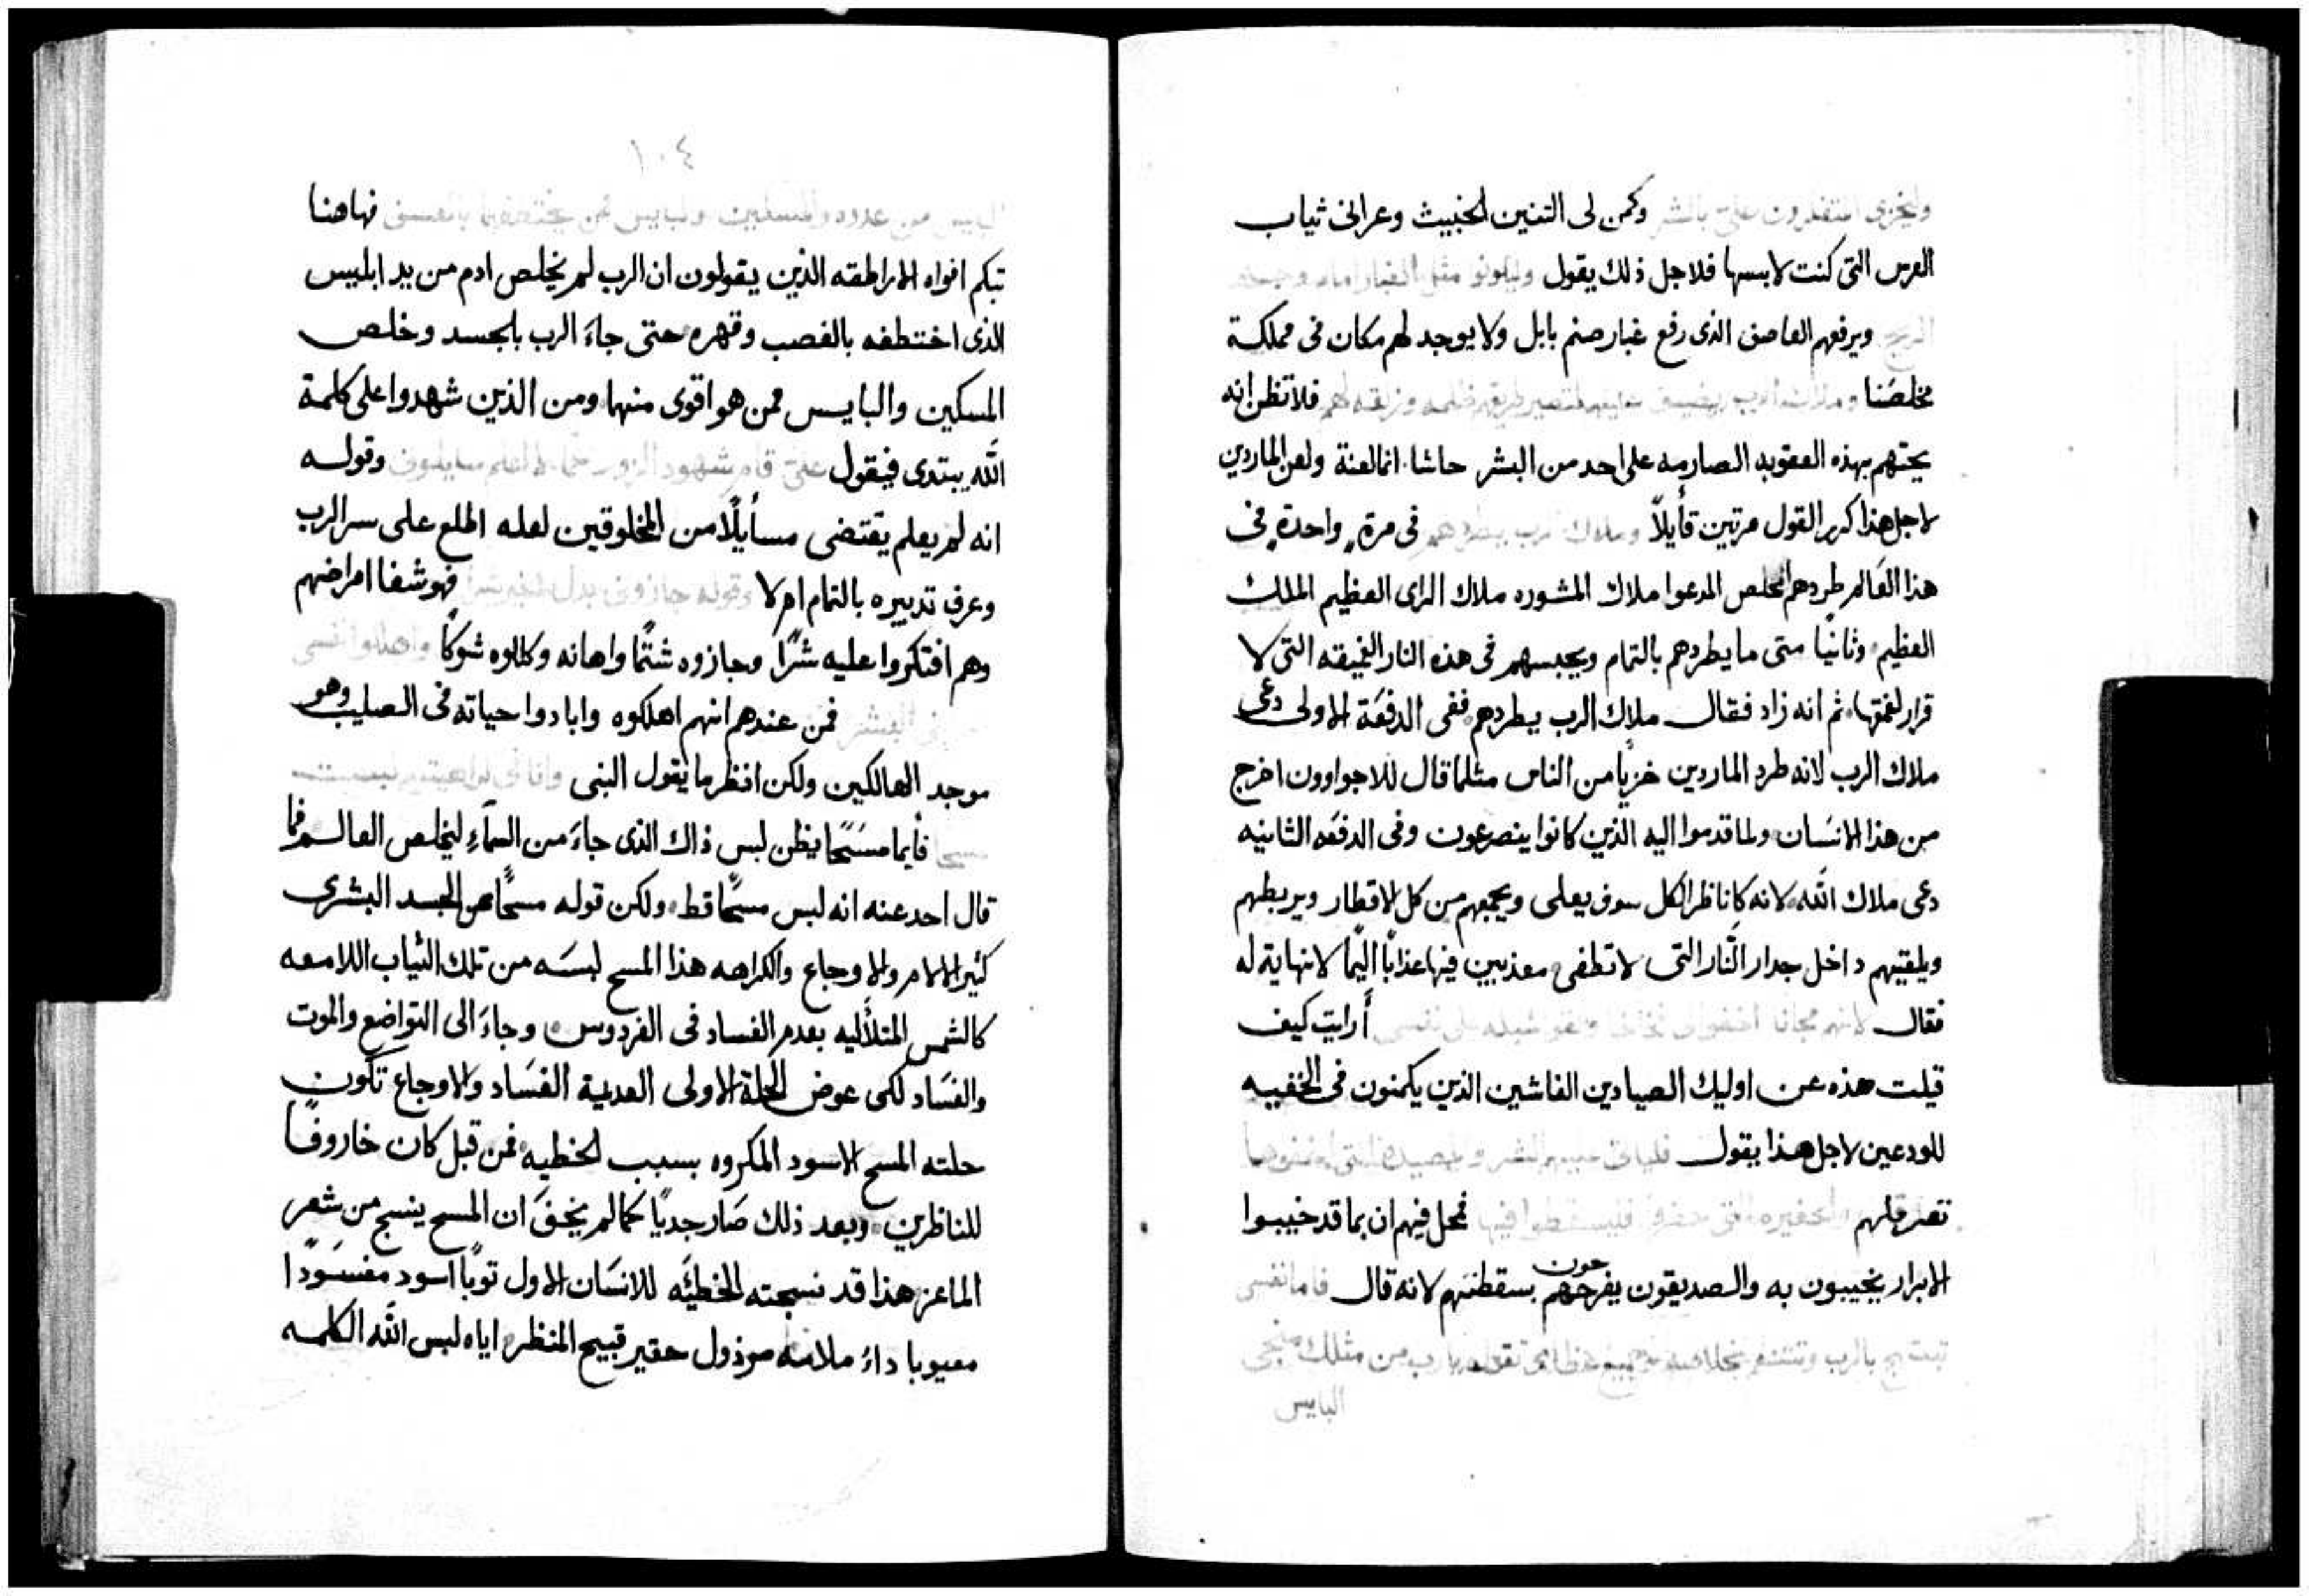 وكمن لى التنين الخبيث وعرانى ثياب
العرس التى كنت لابسها فلاجل ذلك يقول وليكونو مثل الغبار امام
ويرفعهم العاصف الذى رفع غبار صنم بابل ولا يوجد لهم مكان فى مملكة
مخلصنا وملاك الرب يضيق عليهم لتصير طريقهم ظلمه وزلقه لهم فلا تظن انه
يحتهم بهذه العقوبه الصارمه على احد من البشر حاشا انما لعنة ولعن الماردين
لاجل هذا كرر القول مرتين قأيلاً وملاك الرب يطردهم فى مرةٍ واحدةٍ فى
هذا العالم طردهم المخلص المدعوا ملاك المشوره ملاك الراى العظيم الملك
العظيم وثانيًا متى ما يطردهم بالتمام ويحبسهم فى هذه النار العميقه التى لا
قرار لغمقها ثم انه زاد فقال ملاك الرب يطردهم ففى الدفعَة الاولى دعى
ملاك الرب لانه طرد الماردين خزيًا من الناس مثلما قال للاجواوون اخرج
من هذا الانسَان ولما قدموا اليه الذين كانوا ينصرعون وفى الدفعَه الثانيه
دعى ملاك الله لانه كاناظر الكل سوف يعلى ويجمعهم من كل الاقطار ويربطهم
ويلقيهم داخل جدار النَّار التى لا تطفى معذبين فيها عذابًا اليمًا لا نهاية له
فقال لانهم مجانا اخفوا لى أرايت كيف
قيلت هذه عن اوليك الصيادين الغاشين الذين يكمنون فى الخفيه
للودعين لاجل هذا يقول فلياتى عليهم الشر والمصيدة التى اخفوها
تصرعهم والحفيره التى حفروا فليسقطوا فيها فحل فيهم ان بما قد خيبوا
الابرار يخيبون به والصديقون يفرحون بسقطتهم لانه قال فاما نفسى
تبتهج بالرب وتتنعم بخلاصه جميع عظامى تقول يارب من مثلك منجى
البايس
١٠٤
فهاهنا
تبكم افواه الاراطقه الذين يقولون ان الرب لم يخلص ادم من يد ابليس
الذى اختطفه بالغصب وقهره حتى جاءَ الرب بالجسد وخلص
المسكين والبايس ممن هو اقوى منهما ومن الذين شهدوا على كلمة
الله يبتدى فيقول علىّ قام شهود الزور عمّا لا اعلم سايلونى وقوله
انه لم يعلم يقتضى مسأيلًا من المخلوقين لعله اطلع على سر الرب
وعرف تدبيره بالتمام ام لا وقوله جازونى بدل الخير شرًا فهو شفا امراضهم
وهم افتكروا عليه شرًا وجازوه شتمًا واهانه وكللوه شوكًا واهلكوا نفسى
فمن عندهم انهم اهلكوه وابادوا حياته فى الصليب وهو
موجد الهالكين ولكن انظر ما يقول النبى
مسحا فأيما مسَحًا يظن لبس ذاك الذى جاءَ من السمآءِ ليخلص العالم فما
قال احد عنه انه لبس مسحًا قط ولكن قوله مسحًا عن الجسد البشرى
كثير الالام والاوجاع والكراهه هذا المسح لبسَه من تلك الثياب اللامعه
كالشمس المتلأليه بعدم الفساد فى الفردوس وجاءَ الى التواضع والموت
والفسَاد لكى عوض الحلة الاولى العديمة الفسَاد والاوجاع تكون
حلته المسح الاسود المكروه بسبب الخطيه فمن قبل كان خاروفًا
للناظرين وبعد ذلك صَار جديًا كما لم يخفَ ان المسح ينسج من شعر
الماعز هذا قد نسجته الخطيَه للانسَان الاول توبًا اسود مفسَودًا
معيوبا داءُ ملامه مرذول حقير قبيح المنظر اياه لبس الله الكلمه